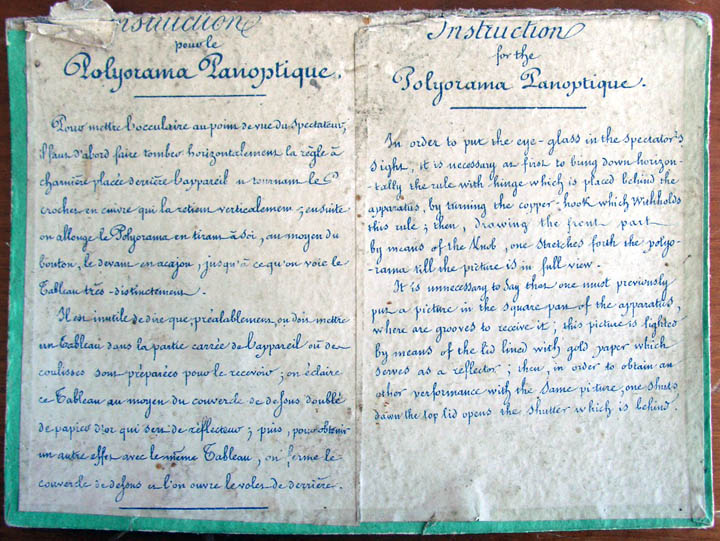 Instruction
pour le
Polyorama Panoptique.
Pour mettre l'occulaire au point de vue du spectateur,
il faut d'abord faire tomber horizontalement la règle à
charnière placée derrière l'appareil en tournant le
crochet en cuivre qui la retient verticalement; ensuite
on allonge le Polyorama en tirant à soi, au moyen du
bouton, le devant en acajou, jusqu'à ce qu'on voie le
Tableau très-distinctement.
Il est inutile de dire que, préalablement, on doit mettre
un Tableau dans la partie carrée de l'appareil où des
coulisses sont préparées pour le recevoir; on éclaire
ce Tableau au moyen du couvercle de dessus doublé
de papier d'or qui sert de réflecteur; puis, pour obtenir
un autre effet avec le même Tableau, on ferme le
couvercle de dessus et l'on ouvre le volet de derrière.
Instruction
for the
Polyorama Panoptique.
In order to put the eye-glass in the spectator's
sight, it is necessary at first to bring down horizon-
tally the rule with hinge which is placed behind the
apparatus, by turning the copper-hook which Withholds
this rule; then, drawing the front part
by means of the Knob, one stretches forth the polyo-
rama till the picture is in full view.
It is unnecessary to say that one must previously
put a picture in the square part of the apparatus,
where are grooves to receive it; this picture is lighted
by means of the lid lined with gold paper which
serves as a reflector; then, in order to obtain an
other performance with the same picture, one shuts
down the top lid opens the shutter which is behind.